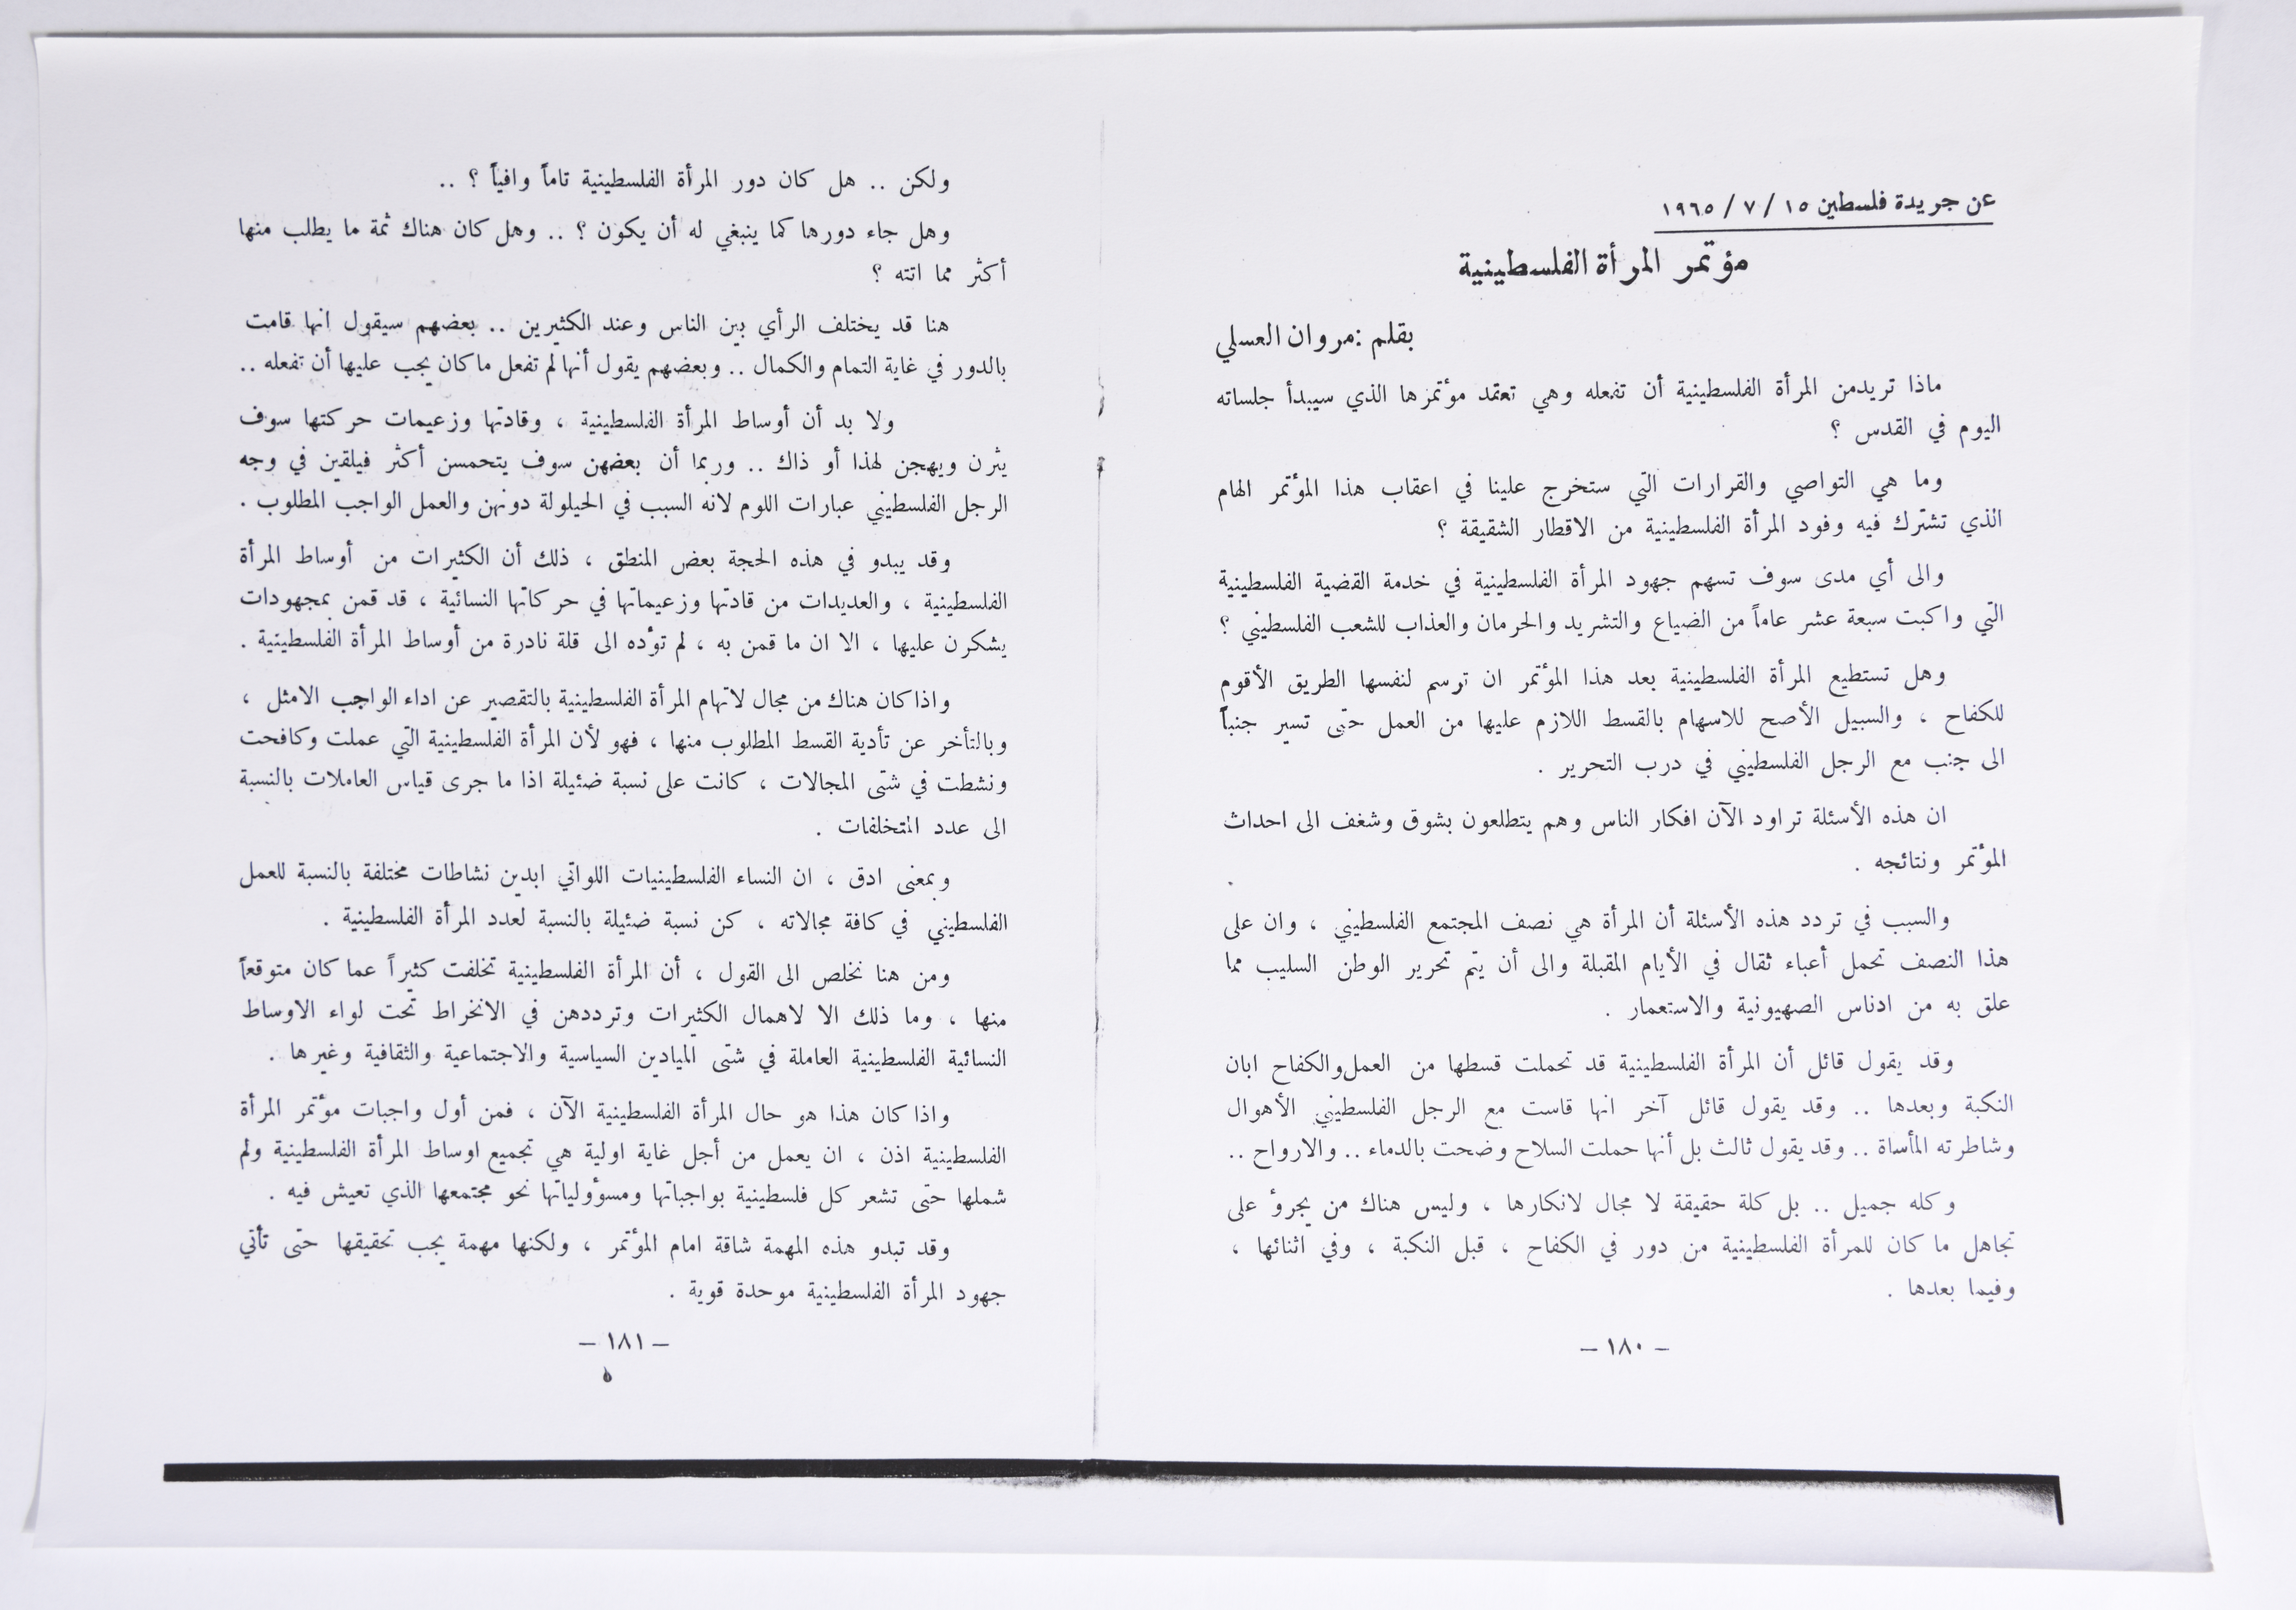 عن جريدة فلسطين ١٥ / ٧ / ١٩٦٥
مؤتمر المرأة الفلسطينية
بقلم : مروان العسلي
ماذا تريدمن المرأة الفلسطينية أن تفعله وهي تعقد مؤتمرها الذي سيبدأ جلساته
اليوم في القدس ؟
وما هي التواصي والقرارات التي ستخرج علينا في اعقاب هذا المؤتمر الهام
الذي تشترك فيه وفود المرأة الفلسطينية من الاقطار الشقيقة ؟
والى أي مدى سوف تسهم جهود المرأة الفلسطينية في خدمة القضية الفلسطينية
التي واكبت سبعة عشر عاماً من الضياع والتشريد والحرمان والعذاب للشعب الفلسطيني ؟
وهل تستطيع المرأة الفلسطينية بعد هذا المؤتمر ان ترسم لنفسها الطريق الأقوم
للكفاح ، والسبيل الأصح للاسهام بالقسط اللازم عليها من العمل حتى تسير جنباً
الى جنب مع الرجل الفلسطيني في درب التحرير .
ان هذه الأسئلة تراود الآن افكار الناس وهم يتطلعون بشوق وشغف الى احداث
المؤتمر ونتائجه .
والسبب في تردد هذه الأسئلة أن المرأة هي نصف المجتمع الفلسطيني ، وان على
هذا النصف تحمل أعباء ثقال في الأيام المقبلة والى أن يتم تحرير الوطن السليب مما
علق به من ادناس الصهيونية والاستعمار .
وقد يقول قائل أن المرأة الفلسطينية قد تحملت قسطها من العمل والكفاح ابان
النكبة وبعدها .. وقد يقول قائل آخر انها قاست مع الرجل الفلسطيني الأهوال
وشاطرته المأساة .. وقد يقول ثالث بل أنها حملت السلاح وضحت بالدماء .. والارواح ..
وكله جميل .. بل كلة حقيقة لا مجال لانكارها ، وليس هناك من يجرؤ على
تجاهل ما كان للمرأة الفلسطينية من دور في الكفاح ، قبل النكبة ، وفي اثنائها ،
وفيما بعدها .
– ١٨٠ –
ولكن .. هل كان دور المرأة الفلسطينية تاماً وافياً ؟ ..
وهل جاء دورها كما ينبغي له أن يكون ؟ .. وهل كان هناك ثمة ما يطلب منها
أكثر مما اتته ؟
هنا قد يختلف الرأي بين الناس وعند الكثيرين .. بعضهم سيقول انها قامت
بالدور في غاية التمام والكمال .. وبعضهم يقول أنها لم تفعل ما كان يجب عليها أن تفعله ..
ولا بد أن أوساط المرأة الفلسطينية ، وقادتها وزعيمات حركتها سوف
يثرن ويهجن لهذا أو ذاك .. وربما أن بعضهن سوف يتحمسن أكثر فيلقين في وجه
الرجل الفلسطيني عبارات اللوم لانه السبب في الحيلولة دونهن والعمل الواجب المطلوب .
وقد يبدو في هذه الحجة بعض المنطق ، ذلك أن الكثيرات من أوساط المرأة
الفلسطينية ، والعديدات من قادتها وزعيماتها في حركاتها النسائية ، قد قمن بمجهودات
يشكرن عليها ، الا ان ما قمن به ، لم تؤده الى قلة نادرة من أوساط المرأة الفلسطينية .
واذا كان هناك من مجال لاتهام المرأة الفلسطينية بالتقصير عن اداء الواجب الامثل ،
وبالتأخر عن تأدية القسط المطلوب منها ، فهو لأن المرأة الفلسطينية التي عملت وكافحت
ونشطت في شتى المجالات ، كانت على نسبة ضئيلة اذا ما جرى قياس العاملات بالنسبة
الى عدد المتخلفات .
وبمعنى ادق ، ان النساء الفلسطينيات اللواتي ابدين نشاطات مختلفة بالنسبة للعمل
الفلسطيني في كافة مجالاته ، كن نسبة ضئيلة بالنسبة لعدد المرأة الفلسطينية .
ومن هنا نخلص الى القول ، أن المرأة الفلسطينية تخلفت كثيراً عما كان متوقعاً
منها ، وما ذلك الا لاهمال الكثيرات وترددهن في الانخراط تحت لواء الاوساط
النسائية الفلسطينية العاملة في شتى الميادين السياسية والاجتماعية والثقافية وغيرها .
واذا كان هذا هو حال المرأة الفلسطينية الآن ، فمن أول واجبات مؤتمر المرأة
الفلسطينية اذن ، ان يعمل من أجل غاية اولية هي تجميع اوساط المرأة الفلسطينية ولم
شملها حتى تشعر كل فلسطينية بواجباتها ومسؤولياتها نحو مجتمعها الذي تعيش فيه .
وقد تبدو هذه المهمة شاقة امام المؤتمر ، ولكنها مهمة يجب تحقيقها حتى تأتي
جهود المرأة الفلسطينية موحدة قوية .
– ١٨١ –